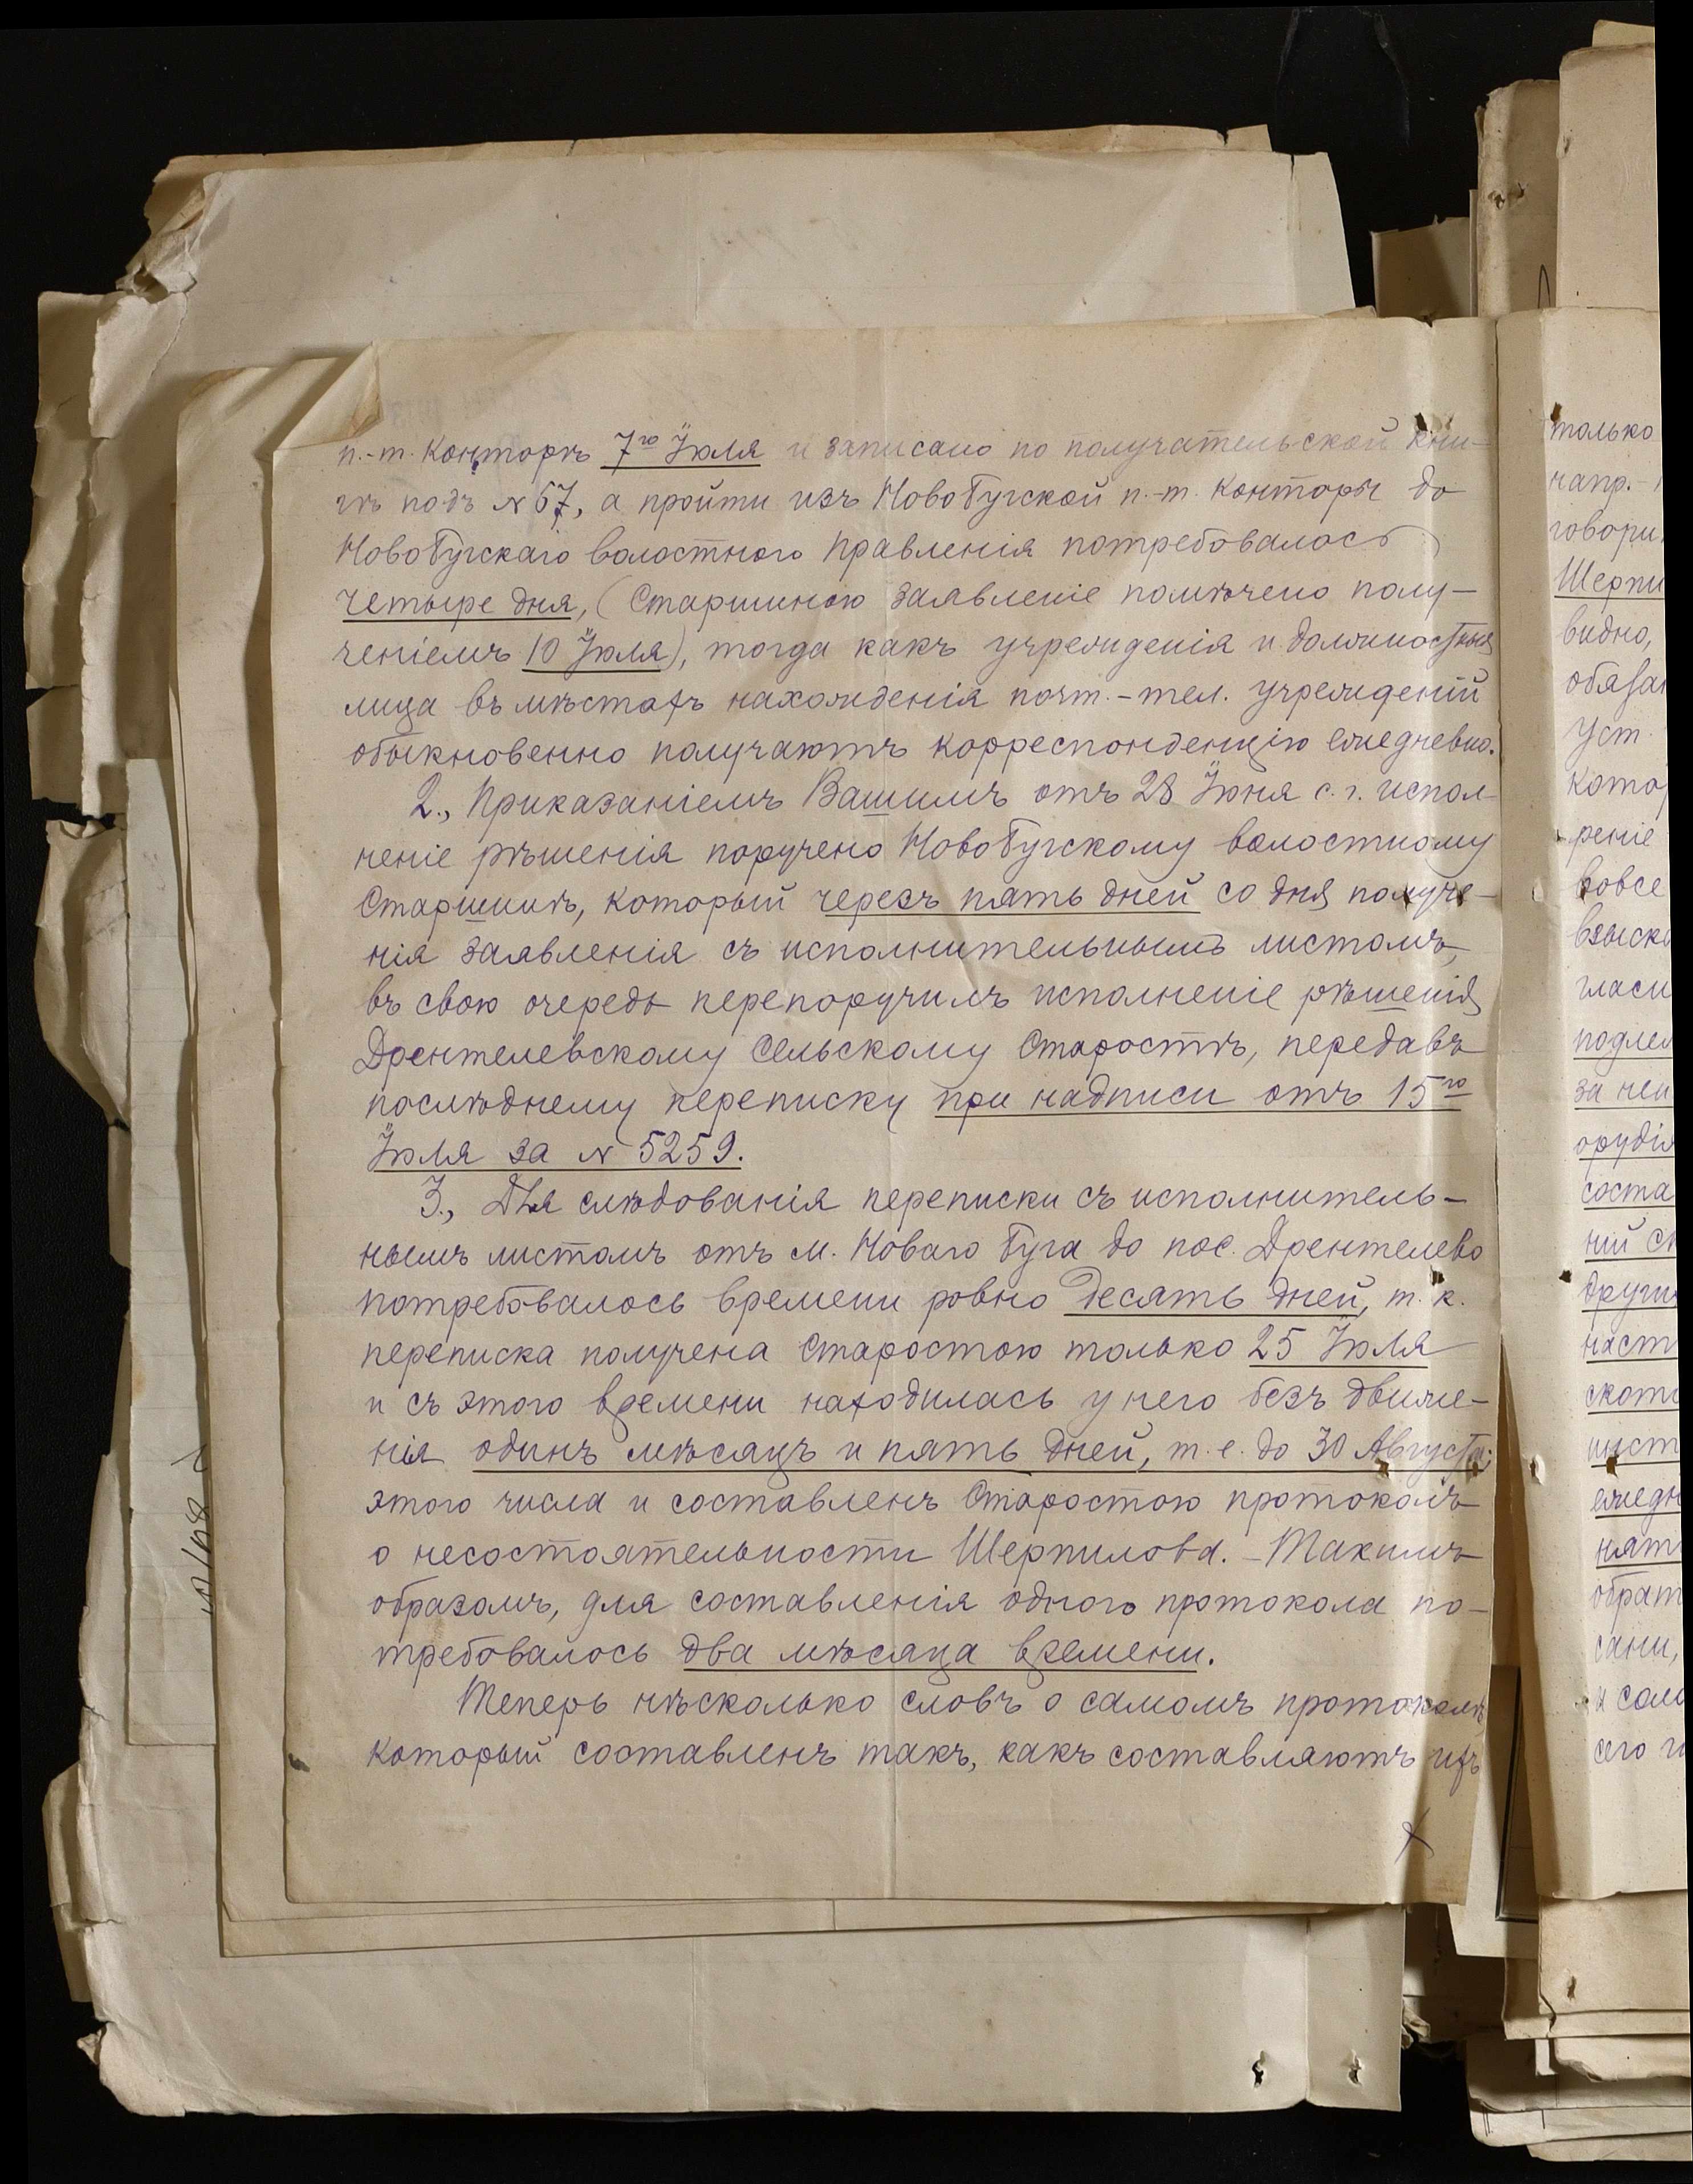 п.-т. Конторѣ 7го Іюля и записано по получательской кни-
гѣ подъ № 67, а пройти изъ НовоБугской п.-т. Конторы до
НовоБугскаго волостного Правленія потребовалось
четыре дня, (Старшиною заявленіе помѣчено полу-
ченіемъ 10 Іюля), тогда какъ учрежденія и должностныя
лица въ мѣстахъ нахожденія почт.-тел. учрежденій
обыкновенно получаютъ корреспонденцію ежедневно.
2., Приказаніемъ Вашимъ отъ 28 Іюня с. г. испол-
неніе рѣшенія поручено НовоБугскому волостному
Старшинѣ, который черезъ пять дней со дня получе-
нія заявленія съ исполнительнымъ листомъ,
въ свою очередь перепоручилъ исполненіе рѣшенія
Дрентелевскому Сельскому Старостѣ, передавъ
послѣднему переписку при надписи отъ 15го
Іюля за № 5259.
3., Для слѣдованія переписки съ исполнитель-
нымъ листомъ отъ м. Новаго Буга до пос. Дрентелево
потребовалось времени ровно десять дней, т. к.
переписка получена Старостою только 25 Іюля
и съ этого времени находилась у него безъ движе-
нія одинъ мѣсяцъ и пять дней, т. е. до 30 Августа;
этого числа и составленъ Старостою протоколъ
о несостоятельности Шерпилова. - Такимъ
образомъ, для составленія одного протокола по-
требовалось два мѣсяца времени.
Теперь нѣсколько словъ о самомъ протоколѣ
который составленъ такъ, какъ составляютъ ихъ
только
напр.-
говори
Шерпи
видно,
обязан
Уст.
Кото
реніе
вовсе
взыска
гласи
подле
за не
орудія
соста
ній с
други
наст
ското
инст
ежедн
нят
обрат
сани,
и сол
сего г